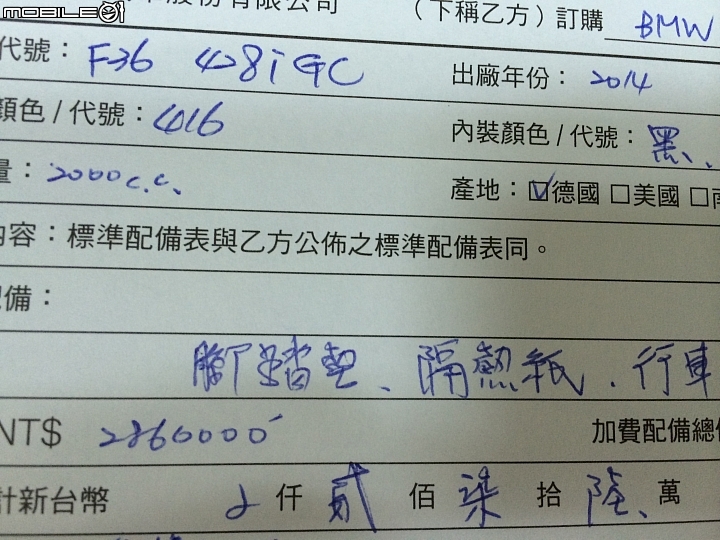 mobile01
股份有限公司 （下稱乙方）訂購 BMW
代號：F36 428i GC 出廠年份：2014
顏色 / 代號：416 內裝顏色 / 代號：黑、
量：2000 c.c. 產地：☑德國 □美國 □南
內容：標準配備表與乙方公佈之標準配備表同。
備：
腳踏墊、隔熱紙、行車
NT$ 2860000 加費配備總價
計新台幣 仟 貳 佰 柒 拾 陸、萬